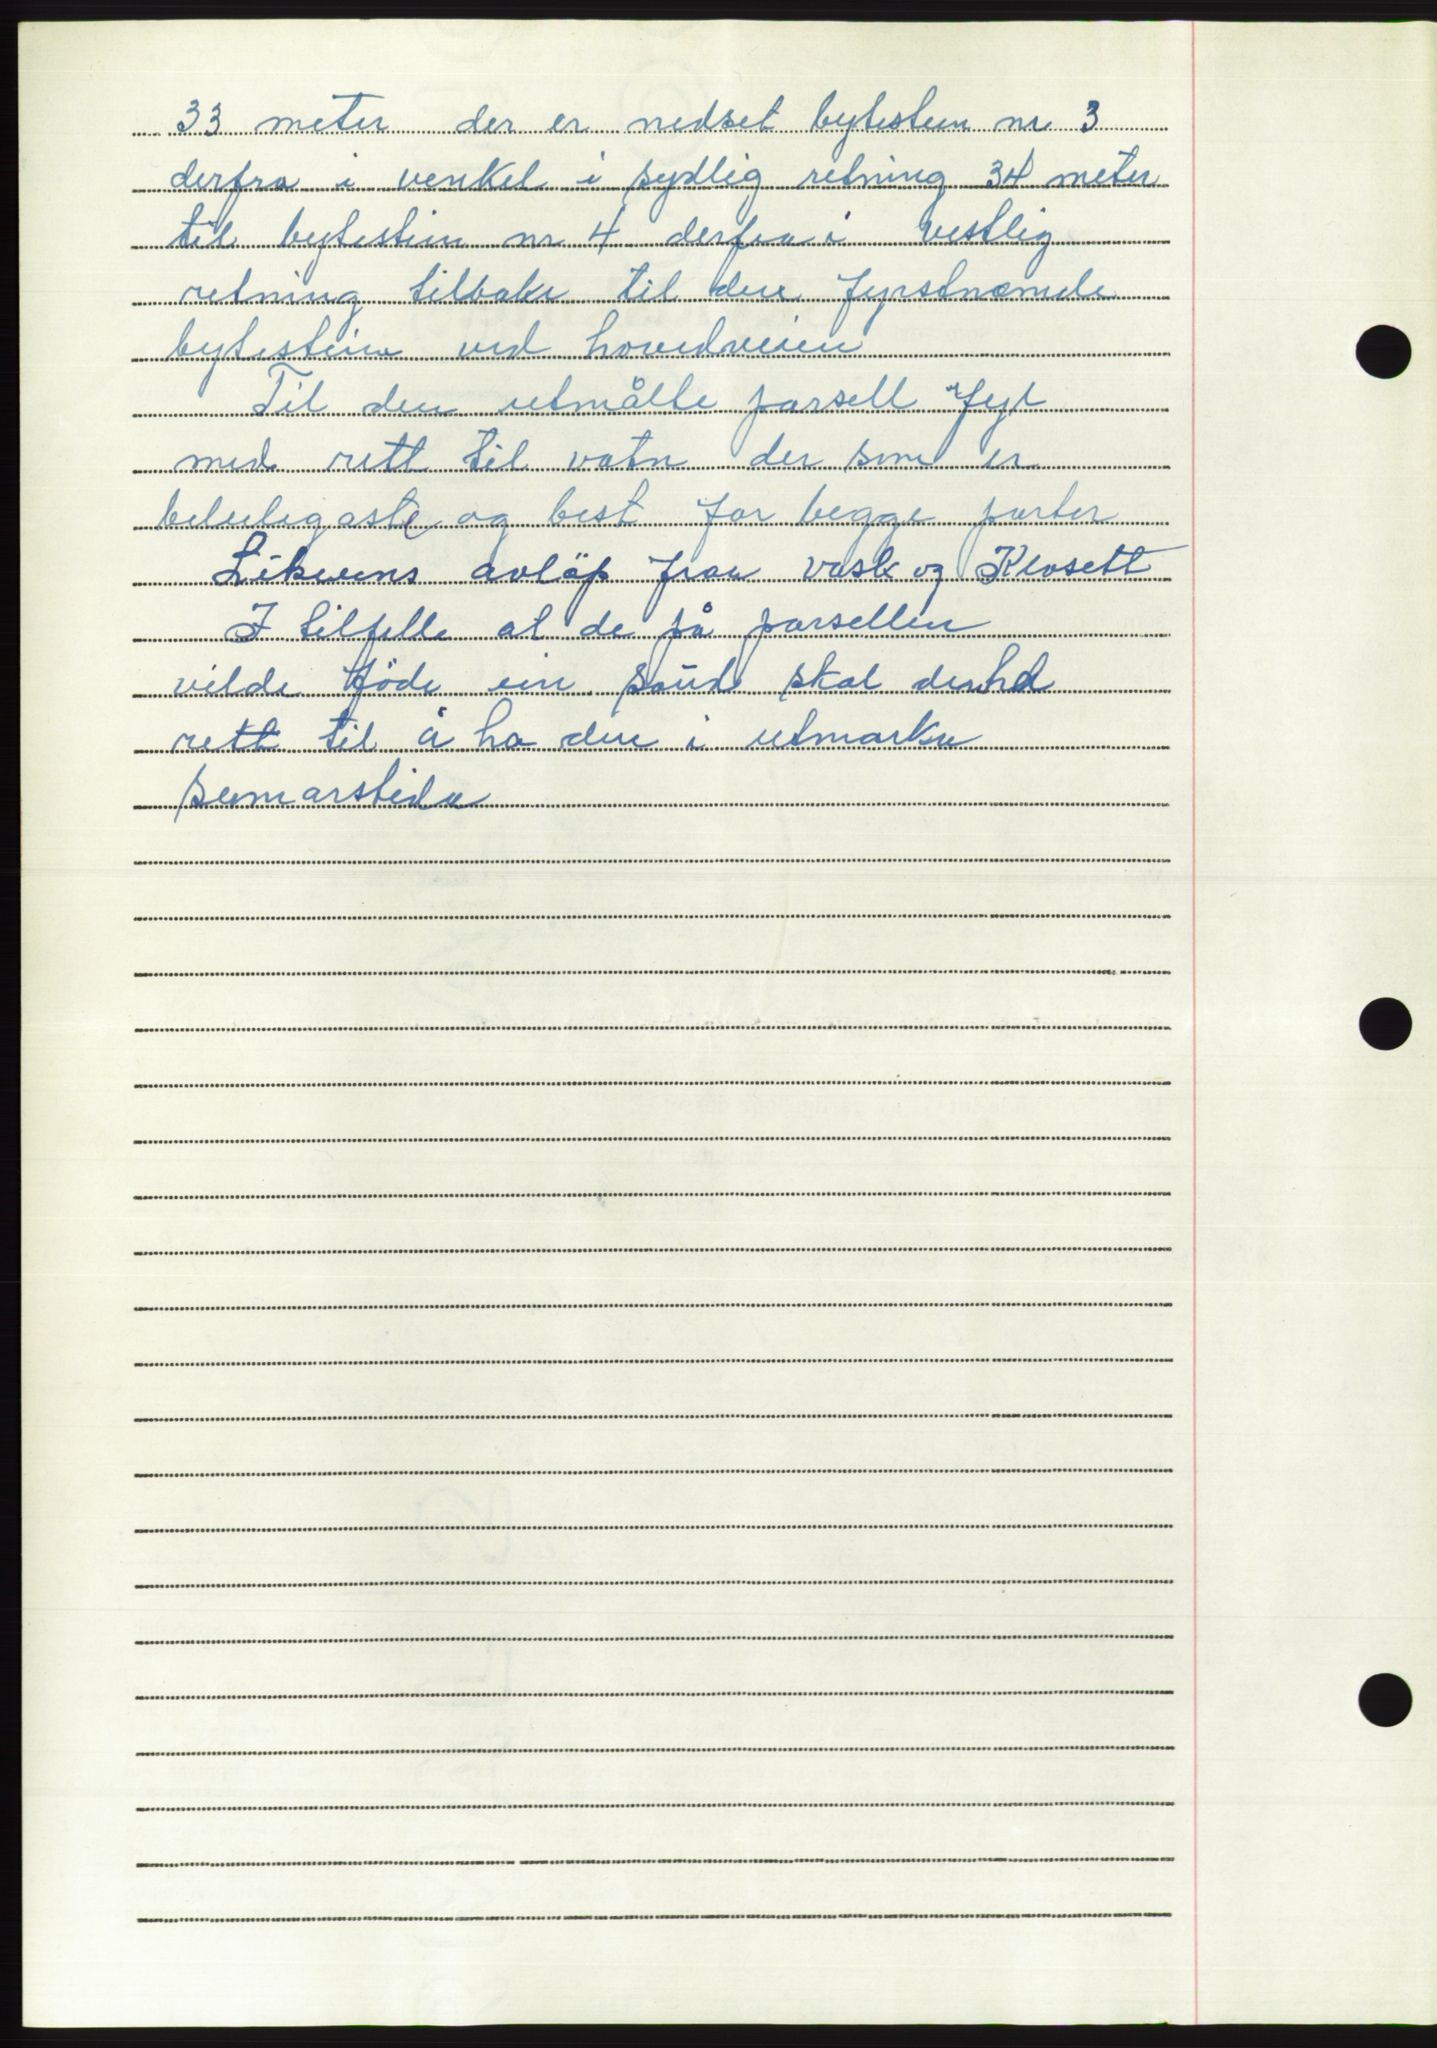 33 meter der er nedset bytestein nr 3
derfra i venkel i sydlig retning 34 meter
til bytestein nr 4 derfra i vestlig
retning tilbake til den fyrstnemde
bytestein ved hovedveien
Til den utmålte parsell er fyl
med rett til vatn der som er
beleiligaste og best for begge parter
Likeens avløp frau vask og Klosett
I tilfelle at de på parsellen
vilde föde ein saud skal den ha
rett til å ha den i utmarka
sumarstida